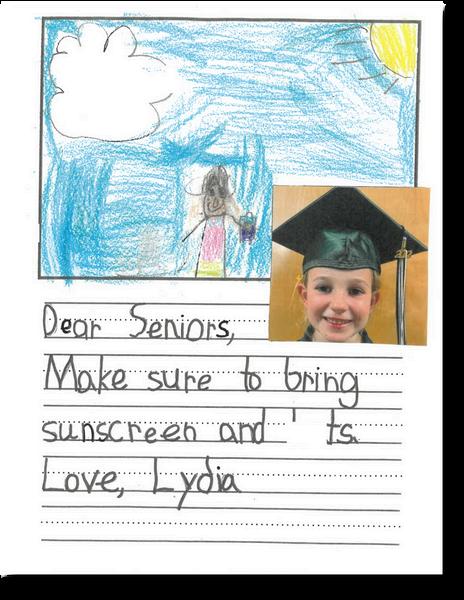 Dear Seniors,
Make sure to bring
sunscreen and
Love, Lydia